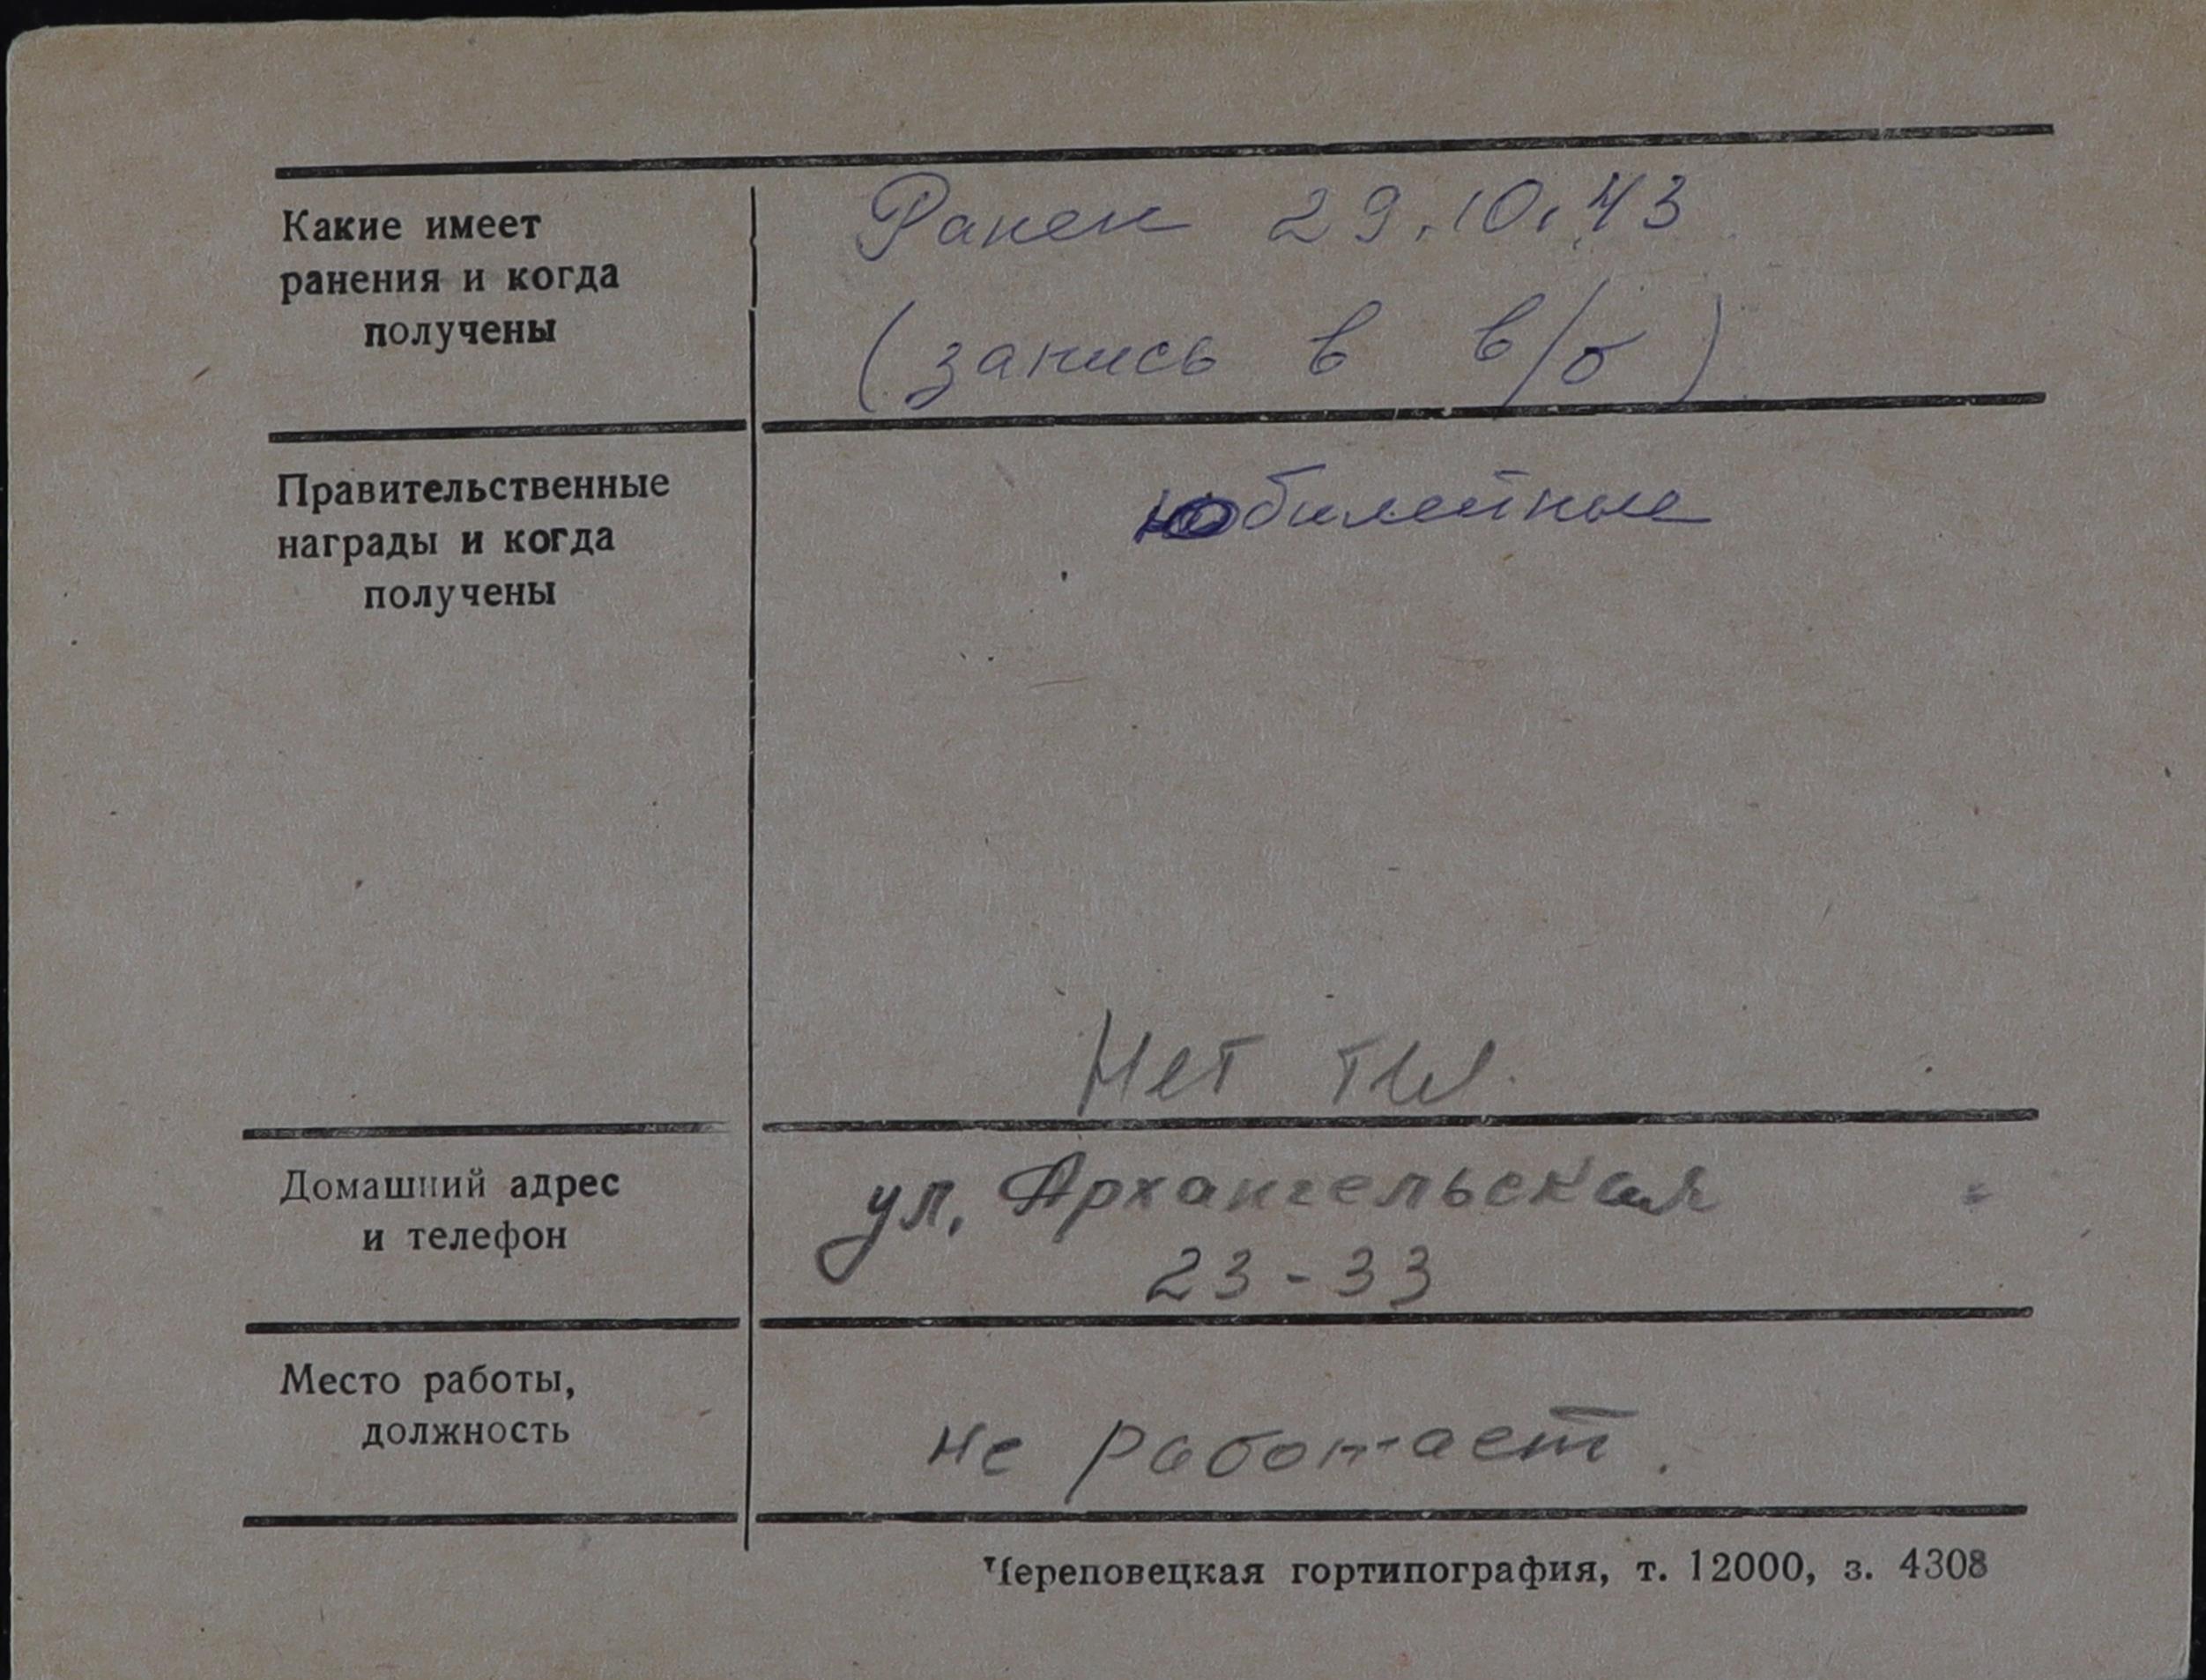 Какие имеет
ранения и когда
получены
Ранен 29.10.43
(запись в в/б)
Правительственные
награды и когда
получены
юбилейные
Нет
Домашний адрес
и телефон
ул. Архангельская
23-33
Место работы,
должность
не работает.
Череповецкая гортипография, т. 12000, з. 4308